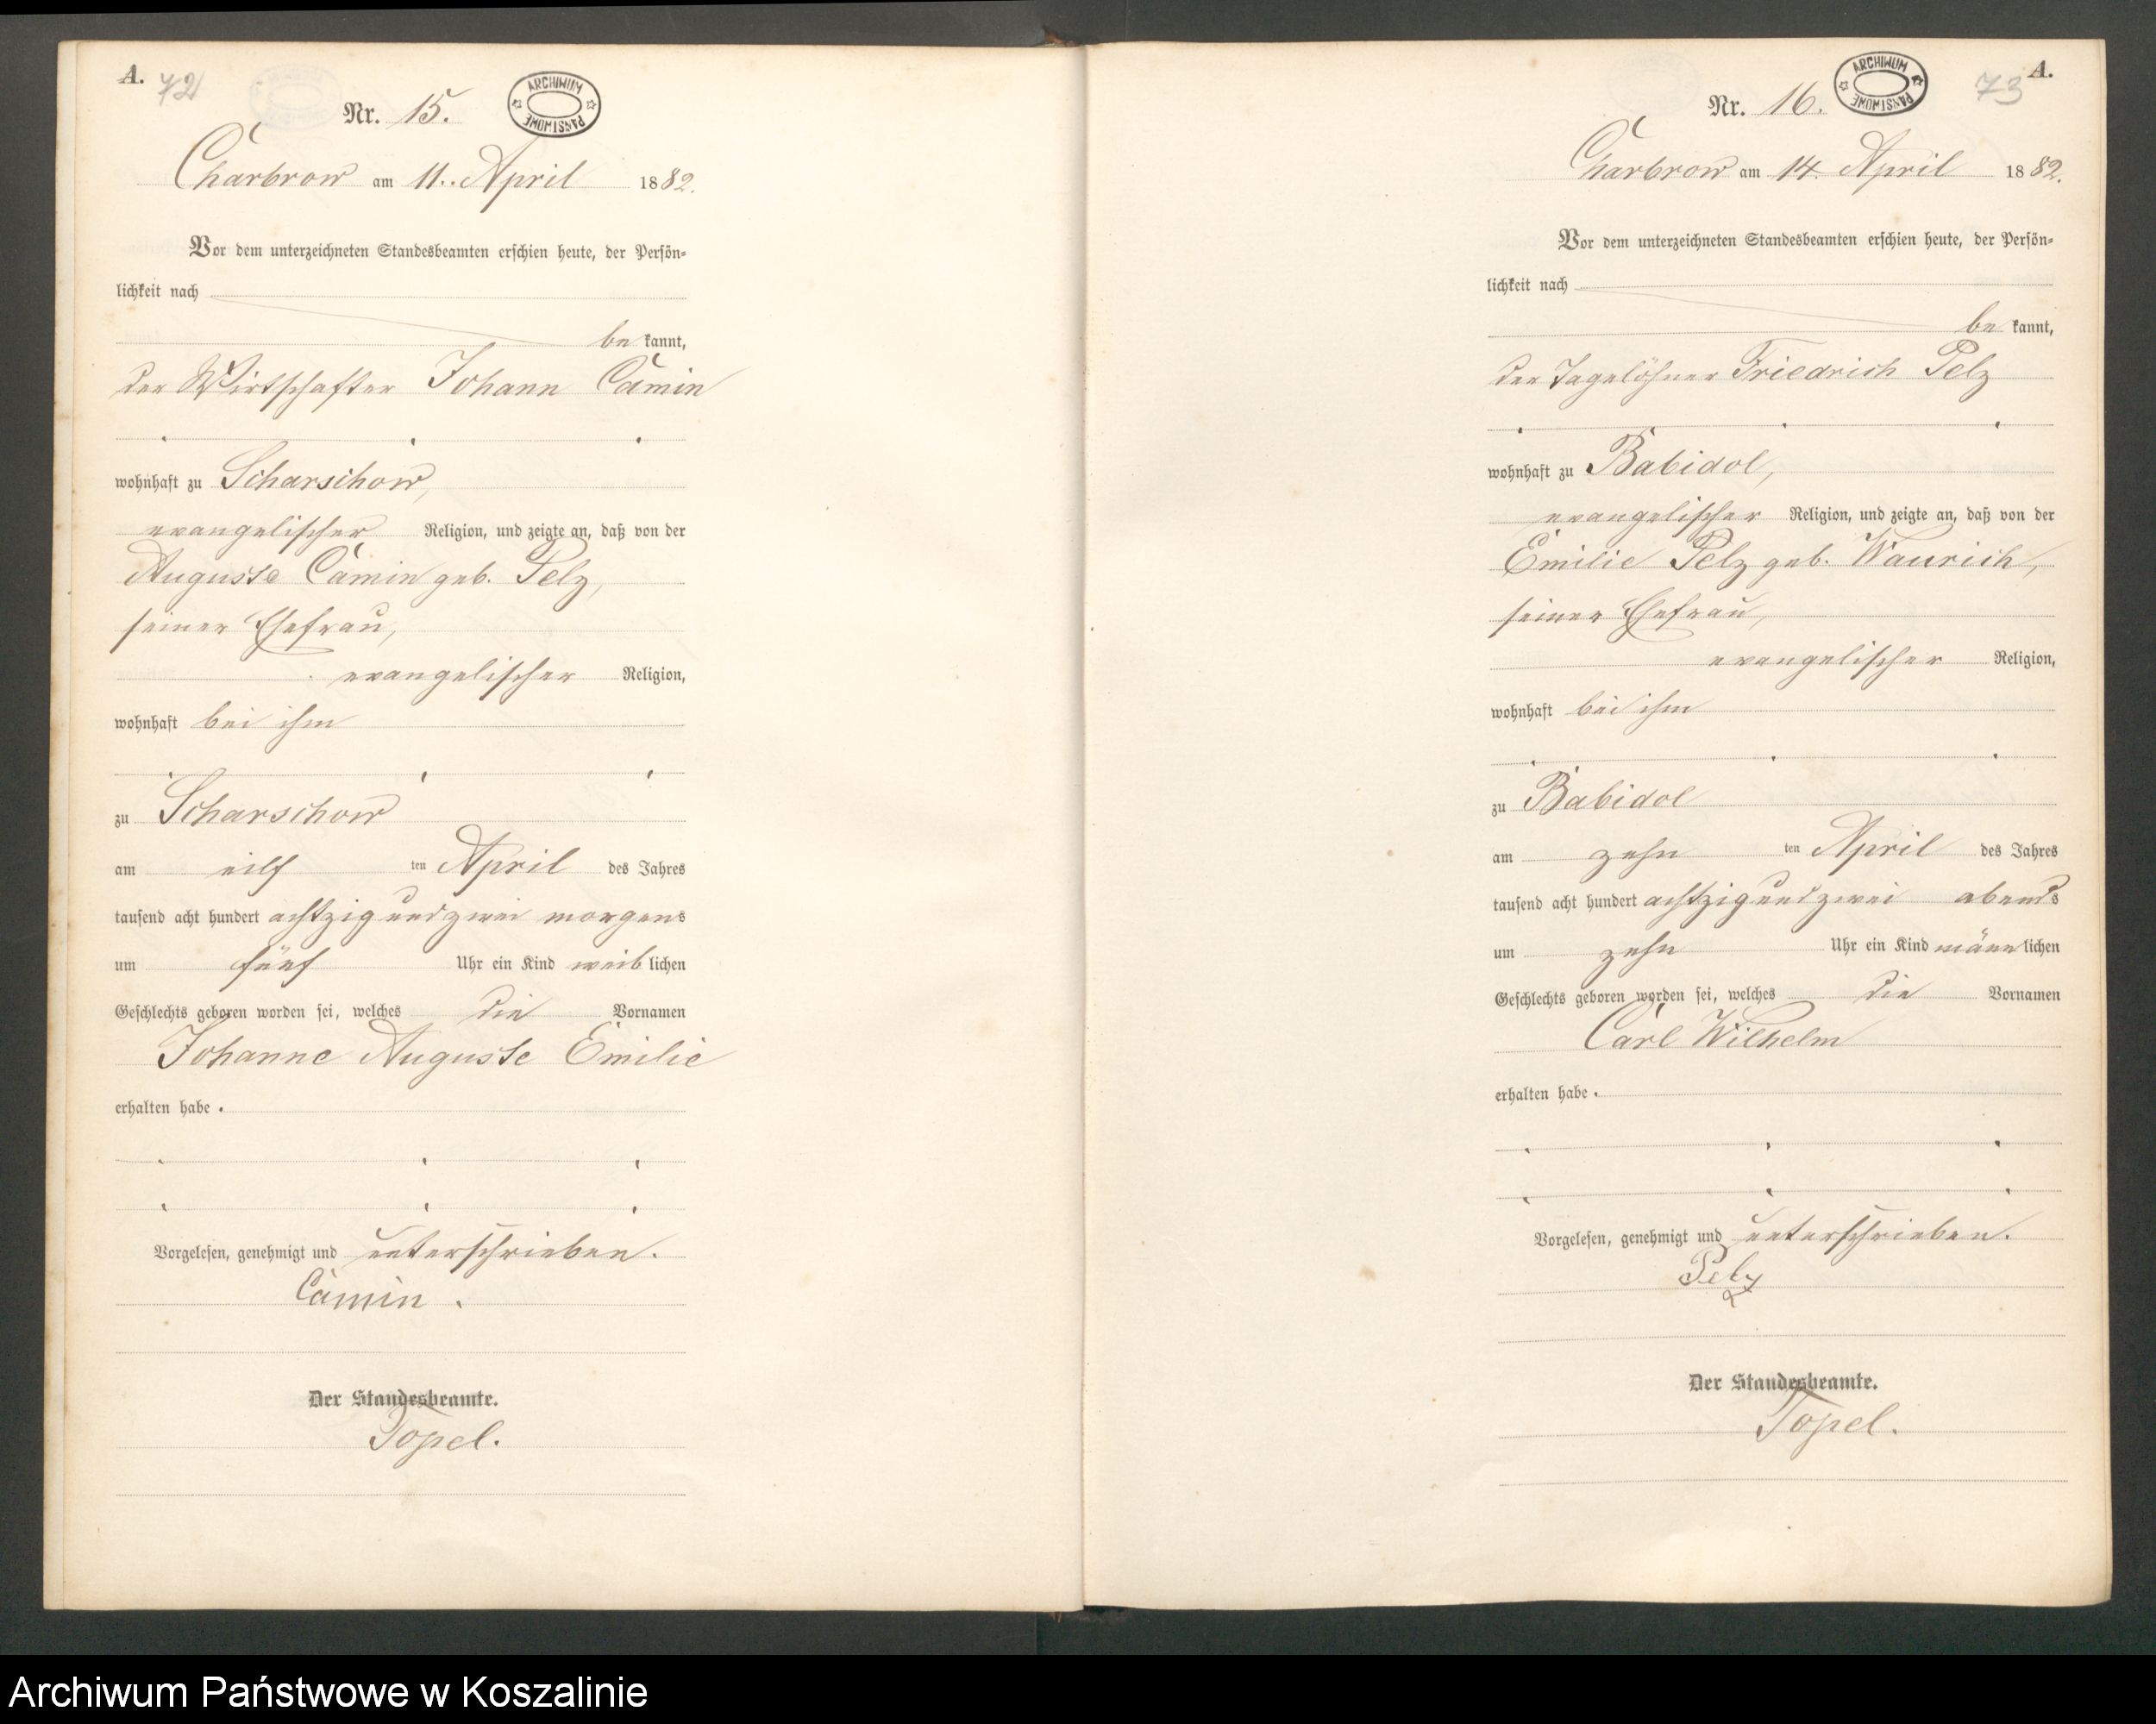 A. 72
Nr. 15.
ARCHIWUM PAŃSTWOWE
Charbrow am 11. April 1882.
Vor dem unterzeichneten Standesbeamten erschien heute, der Persön-
lichkeit nach
bekannt,
der Wirtschafter Johann Camin
wohnhaft zu Scharschow,
evangelischer Religion, und zeigte an, daß von der
Auguste Camin geb. Pelz,
seiner Ehefrau,
evangelischer Religion,
wohnhaft bei ihm
zu Scharschow
am eilf ten April des Jahres
tausend acht hundert achtzig und zwei morgens
um fünf Uhr ein Kind weiblichen
Geschlechts geboren worden sei, welches die Vornamen
Johanne Auguste Emilie
erhalten habe.
Vorgelesen, genehmigt und unterschrieben.
Camin.
Der Standesbeamte.
Topel.
73 A.
Nr. 16.
ARCHIWUM PAŃSTWOWE
Charbrow am 14. April 1882.
Vor dem unterzeichneten Standesbeamten erschien heute, der Persön-
lichkeit nach
bekannt,
der Tagelöhner Friedrich Pelz
wohnhaft zu Babidol,
evangelischer Religion, und zeigte an, daß von der
Emilie Pelz geb. Waurich,
seiner Ehefrau,
evangelischer Religion,
wohnhaft bei ihm
zu Babidol
am zehn ten April des Jahres
tausend acht hundert achtzig und zwei abends
um zehn Uhr ein Kind männlichen
Geschlechts geboren worden sei, welches die Vornamen
Carl Wilhelm
erhalten habe.
Vorgelesen, genehmigt und unterschrieben.
Pelz
Der Standesbeamte.
Topel.
Archiwum Państwowe w Koszalinie